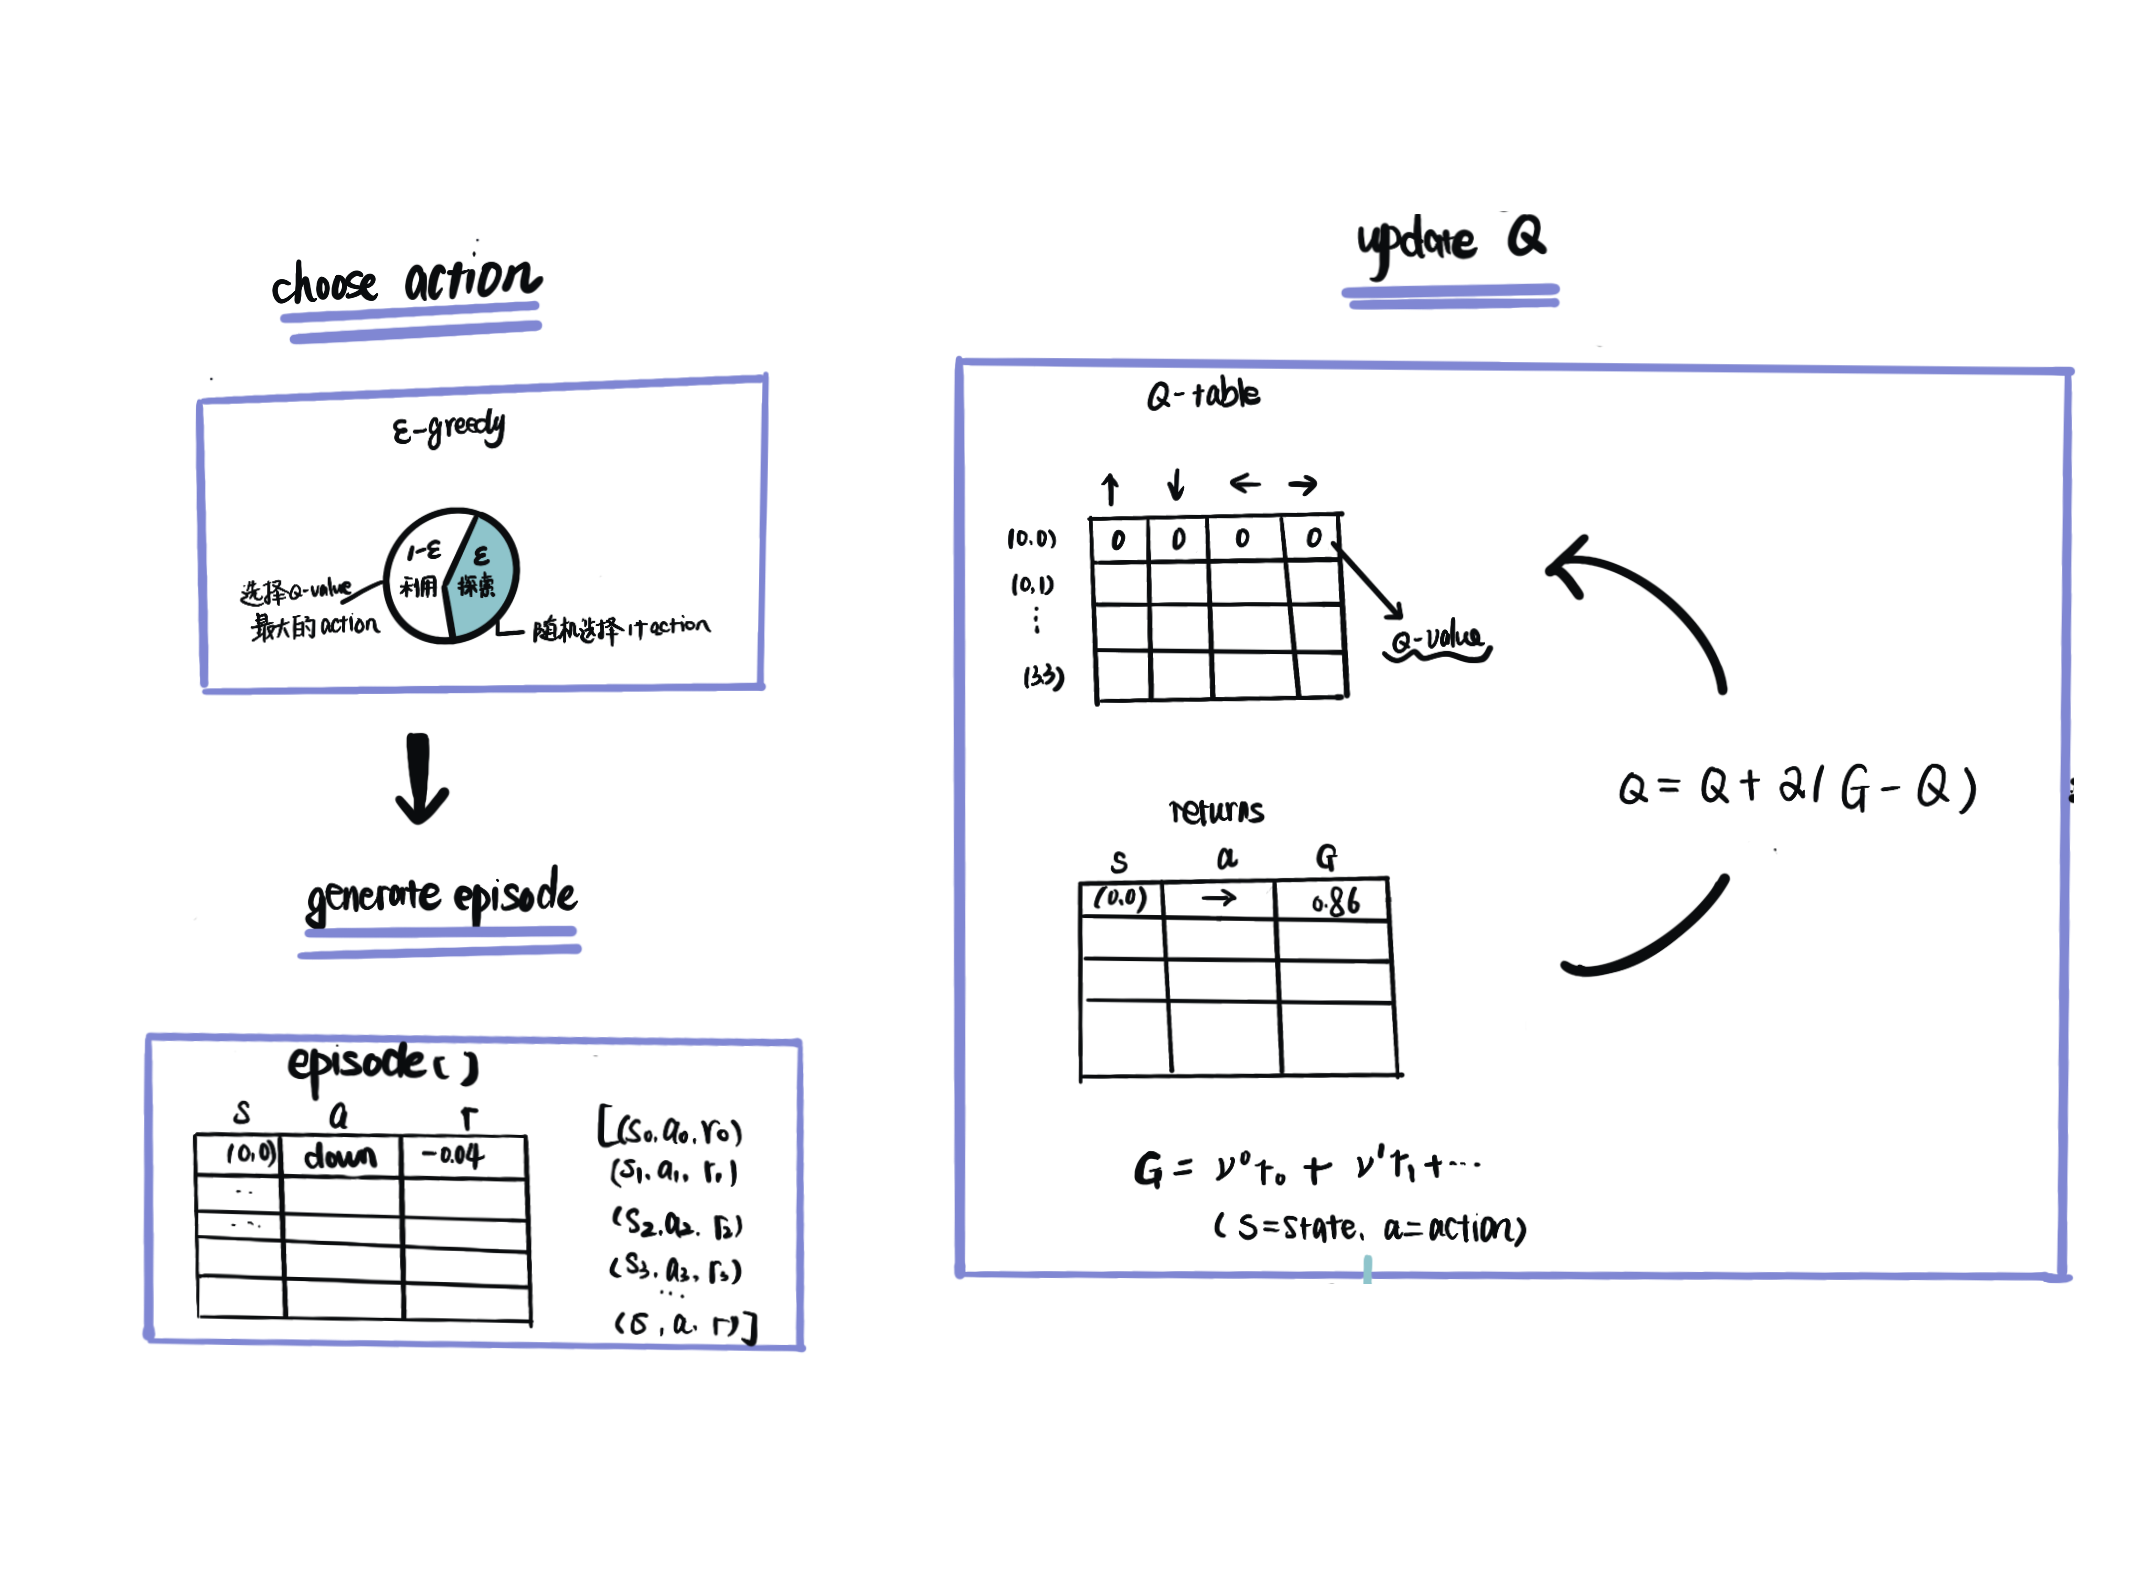 choose action
ε-greedy
1-ε
利用
ε
探索
选择Q-value
最大的 action
随机选择1个action
generate episode
episode()
s a r
(0,0) down -0.04
..
...
[(s₀.a₀.r₀)
(s₁.a₁.r₁)
(s₂.a₂.r₂)
(s₃.a₃.r₃)
...
(s,a.r)]
update Q
Q-table
↑ ↓ ← →
(0.0) 0 0 0 0
(0,1)
⋮
(3.3)
Q-value
returns
s a G
(0.0) → 0.86
Q = Q + 2(G - Q)
G = γ⁰r₀ + γ¹r₁ + ...
(s=state, a=action)